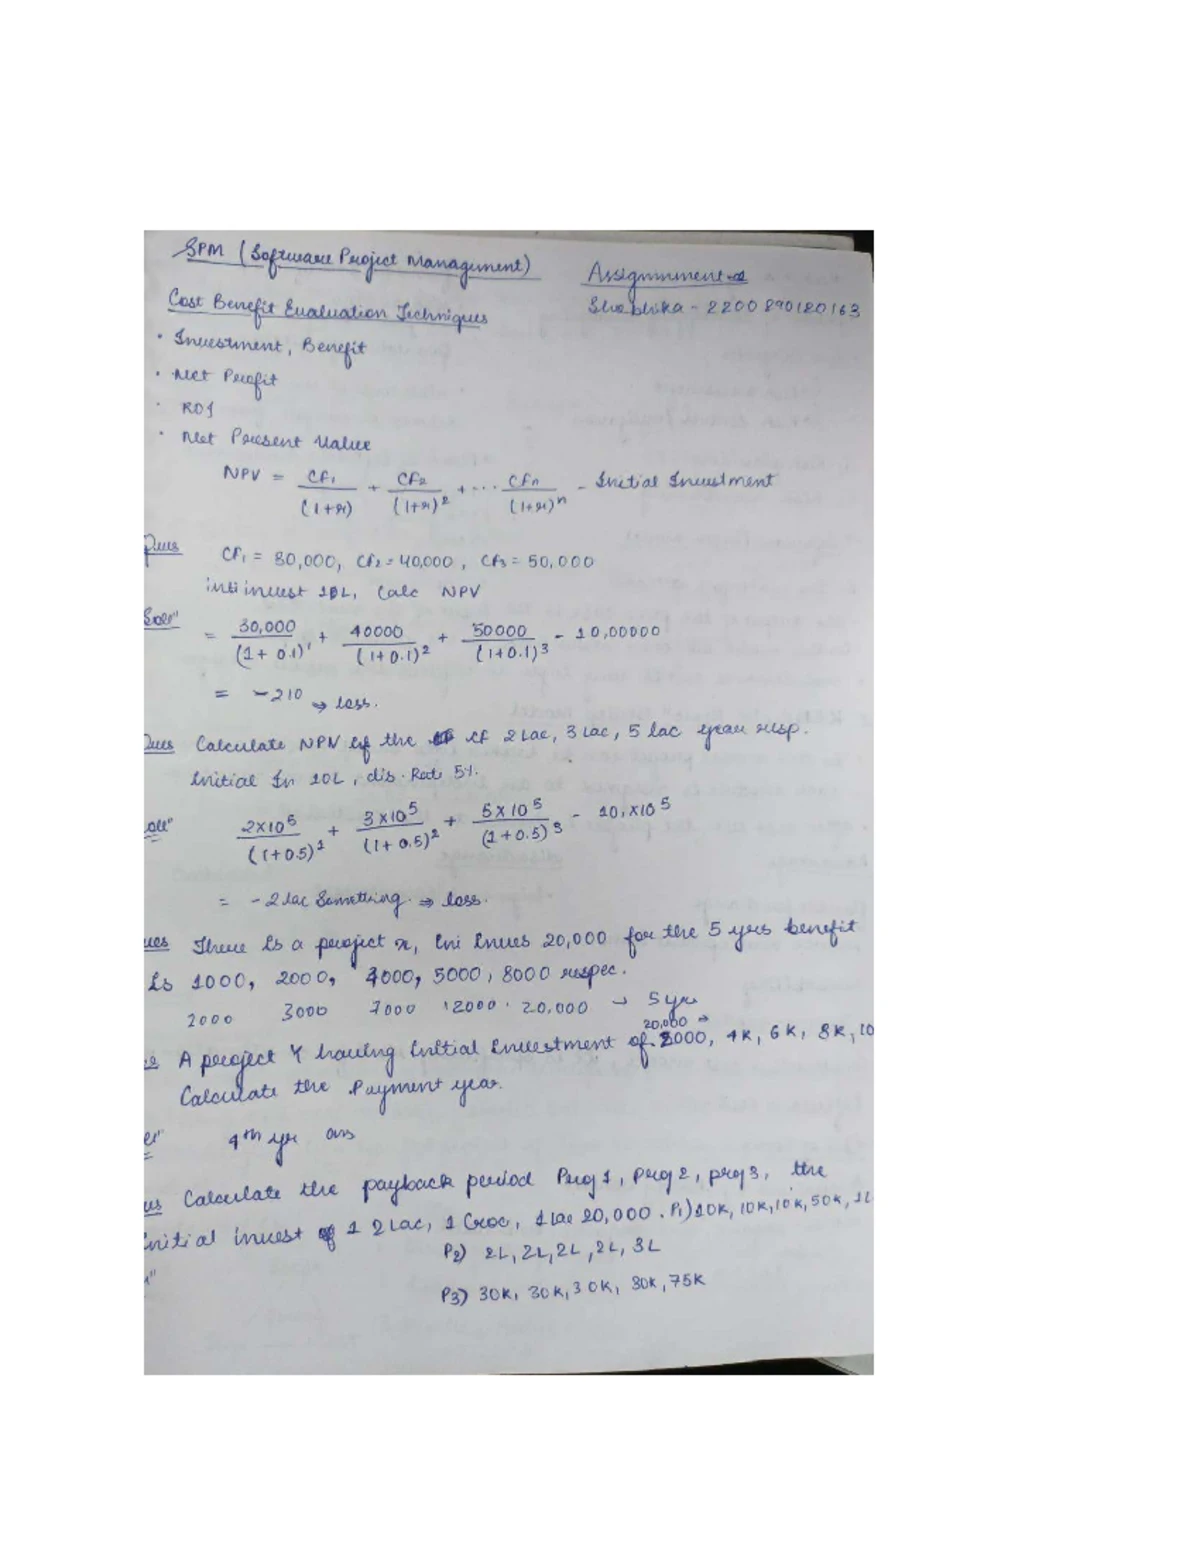 SPM (Software Project Management)
Assignment
- 2200890120163
Cost Benefit Evaluation Techniques
· Investment, Benefit
· Net Profit
· ROI
· Net Present Value
NPV = CF₁/(1+r) + CF₂/(1+r)² + ... CFn/(1+r)ⁿ - Initial Investment
Ques CF₁ = 30,000, CF₂ = 40,000, CF₃ = 50,000
invest 10L, Calc NPV
Solⁿ = 30,000/(1+0.1)¹ + 40000/(1+0.1)² + 50000/(1+0.1)³ - 10,00000
= -210 → loss.
Ques Calculate NPV of the CF 2 Lac, 3 Lac, 5 lac year resp.
Initial In 10L, dis. Rate 5%.
2×10⁵/(1+0.5)¹ + 3×10⁵/(1+0.5)² + 5×10⁵/(1+0.5)³ - 10,×10⁵
= -2 lac Something → loss.
ues There is a project x, Ini Inves 20,000 for the 5 yrs benefit
is 1000, 2000, 4000, 5000, 8000 respec.
2000 3000 7000 12000 20,000 → 5 yrs
20,000 →
A project Y having Initial Investment of 2000, 4K, 6K, 8K, 10
Calculate the Payment year.
4th yr ans
ues Calculate the payback period Proj 1, Proj 2, proj 3, the
Initial invest of 1 2 Lac, 1 Croc, 1 lac 20,000. P₁) 10K, 10K, 10K, 50K, 1L
P₂) 2L, 2L, 2L, 2L, 3L
P₃) 30K, 30K, 30K, 30K, 75K